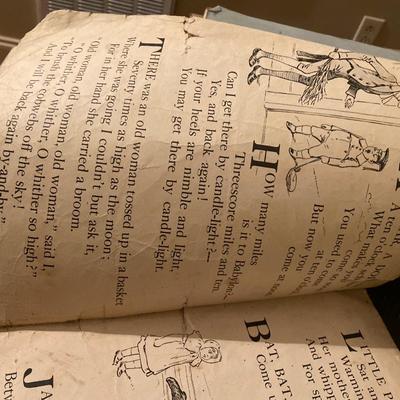 A ten o'
What mak
You used
But now you
come at
HOW many miles
is it to Babylon?—
Threescore miles and ten.
Can I get there by candle-light?—
Yes, and back again!
If your heels are nimble and light,
You may get there by candle-light.
THERE was an old woman tossed up in a basket
Seventy times as high as the moon;
Where she was going I couldn't but ask it,
For in her hand she carried a broom.
"Old woman, old woman, old woman," said I,
"O whither, O whither, O whither so high?"
"To brush the cobwebs off the sky!
And I will be back again by-and-by."
LITTLE P
Sat
Warming
Her mother
And whipp
For sp
BAT, BAT,
Come u
JA
Betw